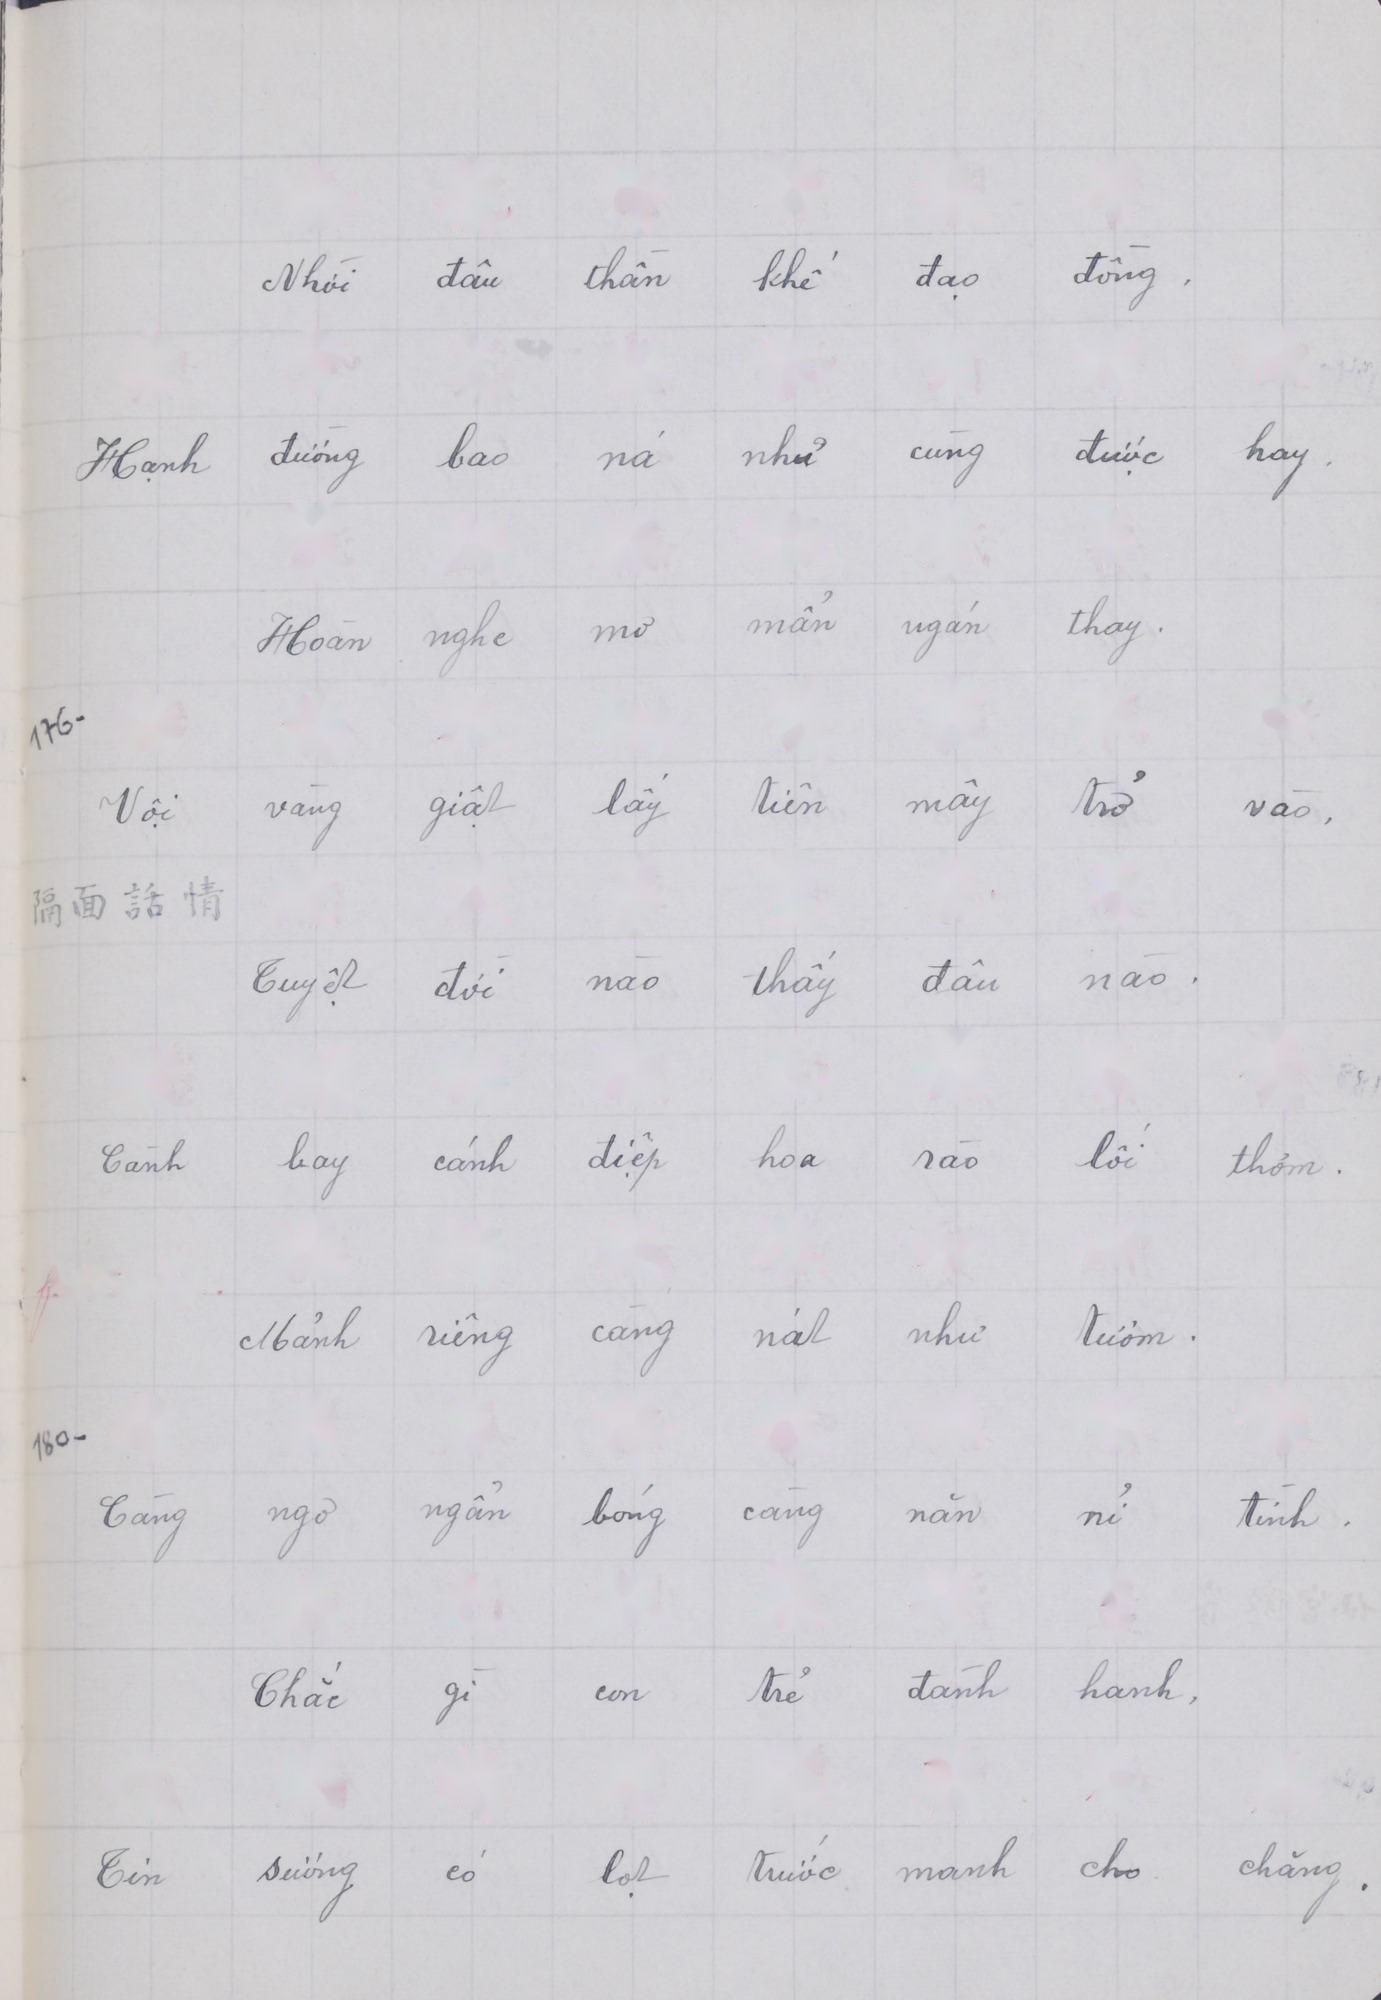 Nhời đâu thần khế đạo đồng,
Hạnh đường bao nả nhử cùng được hay.
Hoàn nghe mơ mẩn ngán thay.
176-
Vội vàng giật lấy tiên mây trở vào,
隔面話情
Tuyệt đời nào thấy đâu nào.
Cành bay cánh điệp hoa rào lối thơm.
Mảnh riêng càng nát như tươm.
180-
Càng ngơ ngẩn bóng càng năn nỉ tình.
Chắc gì con trẻ đành hanh,
Tin sương có lọt trước manh cho chăng.